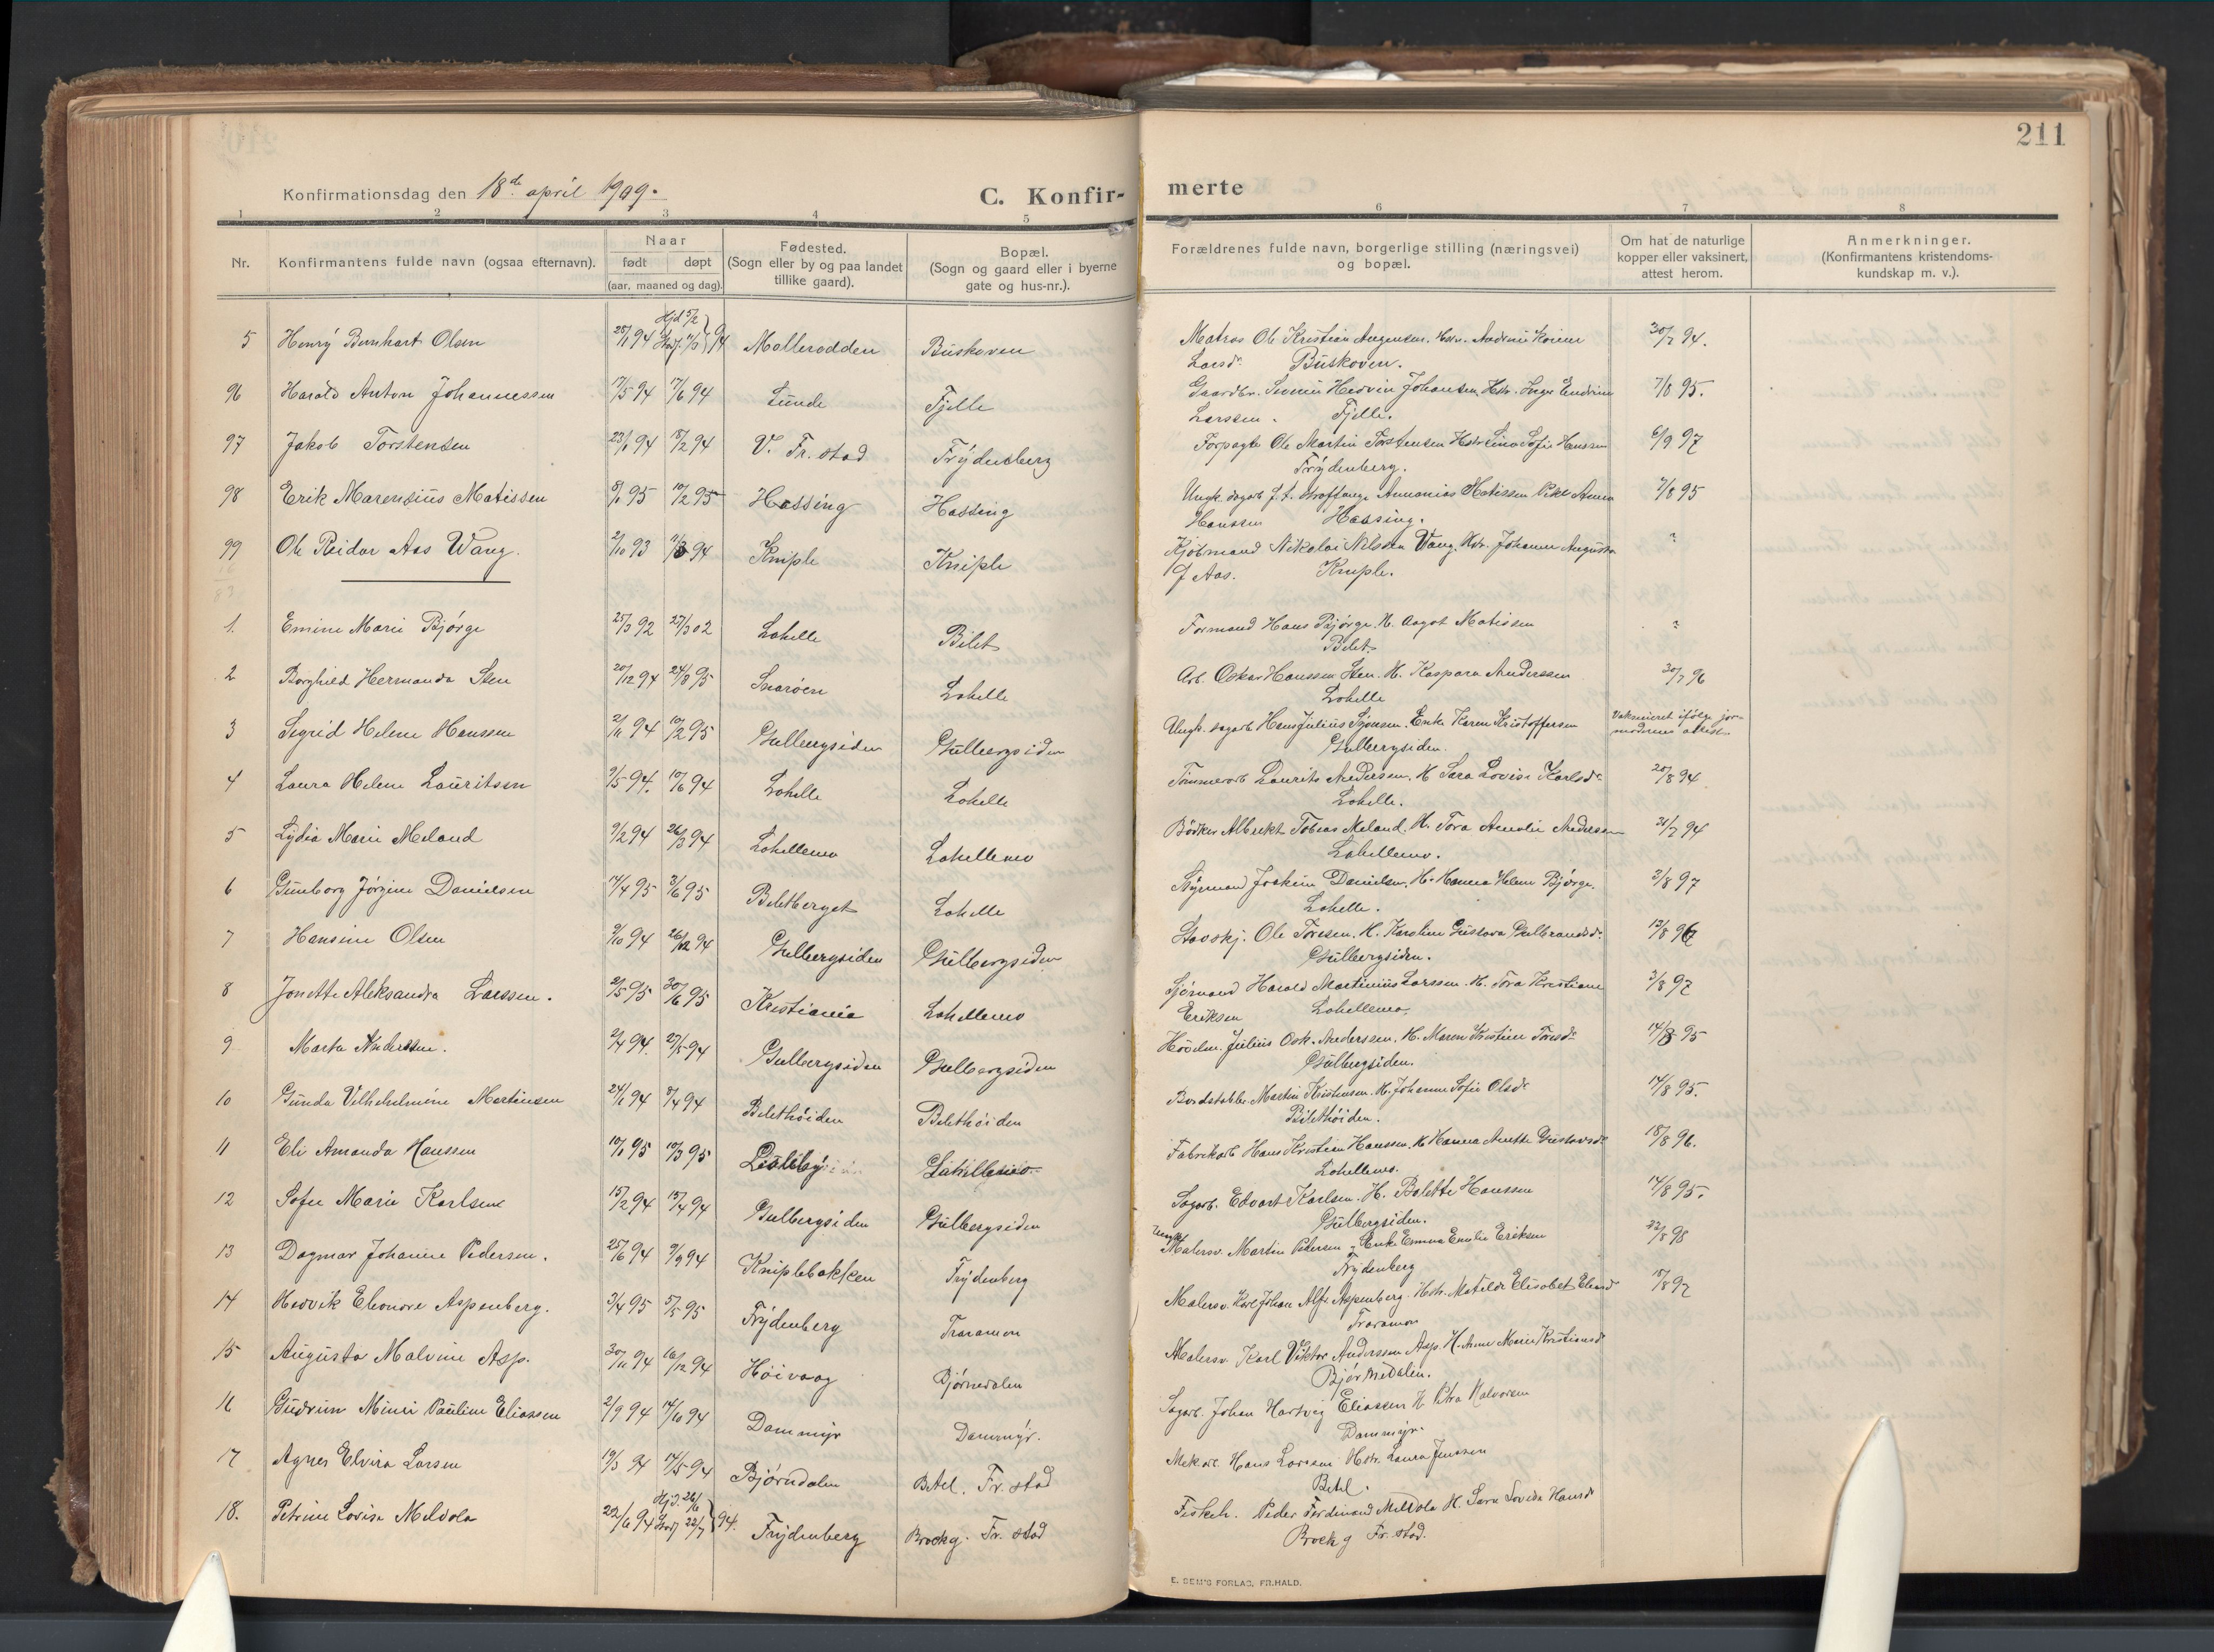 211
Konfirmationsdag den 18de april 1909.
C. Konfir-
merte
1 2 3 4 5 6 7 8
Nr.
Konfirmantens fulde navn (ogsaa efternavn).
Naar
født døpt
(aar, maaned og dag).
Fødested.
(Sogn eller by og paa landet
tillike gaard).
Bopæl.
(Sogn og gaard eller i byerne
gate og hus-nr.).
Forældrenes fulde navn, borgerlige stilling (næringsvei)
og bopæl.
Om hat de naturlige
kopper eller vaksinert,
attest herom.
Anmerkninger.
(Konfirmantens kristendoms-
kundskap m. v.).
5 Henry Bernhart Olsen 25/1 94 Hjd 5/2 94 Mollerodden Buskoven Matros Ole Kristian Augensen. 30/7 94.
Larsdr. Buskoven.
96 Harald Anton Johannessen 17/5 94 17/6 94 Lunde Fjelle Gaardbr. Johansen, Hstr. Inger 7/8 95.
Larssen. Fjelle.
97 Jakob Torstensen 23/1 94 18/2 94 V. Fr.stad Frydenberg Forpagter Ole Martin Torstensen Hstr. Lina Sofie Hanssen 6/9 97
Frydenberg.
98 Erik Marensius Matissen 5/1 95 10/2 95 Hassing Hassing Ungk. sagarb. Annanias Matissen Pike Anna 7/8 95
Hanssen Hassing.
99 Ole Reidar Aas Wang. 2/10 93 11/3 94 Kniple Kniple Kjøbmand Nikolai Nilssen Vang. Hstr. Johanne Augusta ?
f Aas. Kniple.
1. Emine Marie Bjørge 25/3 92 27/3 02 Lahelle Bilet Formand Hans Bjørge. H. Aagot Matissen ?
Bilet
2 Borghild Hermanda Sten 20/12 94 24/8 95 Snarøen Lahelle Arb. Oskar Hanssen Sten. H. Kaspara Anderssen 30/7 96
Lahelle
3 Sigrid Helene Hanssen 2/11 94 10/2 95 Gulbergsiden Gulbergsiden Ungk. sagarb. Hans Julius Syvensen. Enke Karen Kristoffersen Vaksineret ifølge jor-
Gulbergsiden. moderens attest.
4 Laura Helene Lauritsen 9/5 94. 10/6 94 Lahelle Lahelle Tømmerarb. Laurits Andersen. H Sara Lovise Karlsdr 20/8 94
Lahelle.
5 Lydia Marie Meland 9/2 94 26/3 94 Lahellemo Lahellemo Bødker Albrekt Tobias Meland. H. Tora Amalie Andersen 21/7 94
Lahellemo.
6 Gunborg Jørgine Danielsen 14/4 95 3/6 95 Biletberget Lahelle Styrmand Joakim Danielsen. H. Hanna Helene Bjørge. 3/8 97
Lahelle.
7 Hansine Olsen 9/10 94 26/12 94 Gulbergsiden Gulbergsiden Stavskj. Ole Toresen. H. Karoline Gustava Gulbrandsd. 13/8 96
Gulbergsiden.
8 Jonette Aleksandra Larssen. 2/5 95 30/6 95 Kristiania Lahellemo Sjømand Harald Martinius Larssen. H. Tora Kristiane 3/8 97
Eriksen Lahellemo
9 Marta Anderssen. 2/4 94. 27/5 94 Gulbergsiden Gulbergsiden Høvlm. Julius Osk. Anderssen. H. Maren Kristine Toresdr 14/8 95
Gulbergsiden.
10 Gunda Vilhelmine Martinsen 24/1 94 8/4 94 Bilethøiden Bilethøiden Bordstabler Martin Kristensen. H. Johanne Sofie Olsdr 14/8 95.
Bilethøiden.
11 Eli Amanda Hanssen 10/1 95 10/3 95 Lisleby Lahellemo Fabrikarb Hans Kristian Hanssen. H Hanna Anette Gustavsdr 18/8 96.
Lahellemo.
12 Sofie Marie Karlsen 15/2 94 15/4 94 Gulbergsiden Gulbergsiden Sagarb. Edvart Karlsen. H. Bolette Hanssen 14/8 95.
Gulbergsiden.
13 Dagmar Johanne Pedersen. 25/6 94 9/9 94 Kniplebakken Frydenberg Ungk. Malersv. Martin Pedersen & Enke Emma Emilie Eriksen 22/8 98
Frydenberg
14 Hedvik Elenore Aspenberg. 3/4 95 5/5 95 Frydenberg Traramon Malersv. Karl Johan Alfr. Aspenberg. Hstr. Matilde Elisabet 15/8 97
Traramon
15 Augusta Malvine Asp. 30/11 94 16/12 94 Høivaag Bjørnedalen Malersv. Karl Viktor Anderssen Asp. H. Anne Marie Kristiansdr
Bjørnedalen.
16 Gudrun Minni Pauline Eliassen 2/9 94 14/10 94 Dammyr Dammyr. Sagarb. Johan Hartvig Eliassen H Petra Halvorsen
Dammyr.
17 Agnes Elvira Larsen 19/3 94 14/5 94 Bjørndalen Betel. Fr.stad Mek. arb. Hans Larssen Hstr. Laura Jenssen
Betel.
18. Petrine Lovise Meldola 22/6 94 Hjd. 26/6 Stadf 22/7 94. Frydenberg Brochg. Fr.stad Fiskeh. Peder Ferdinand Meldola H. Sara Lovisa Hansdr
Brochg Fr.stad.
E. SEM'S FORLAG, FR.HALD.